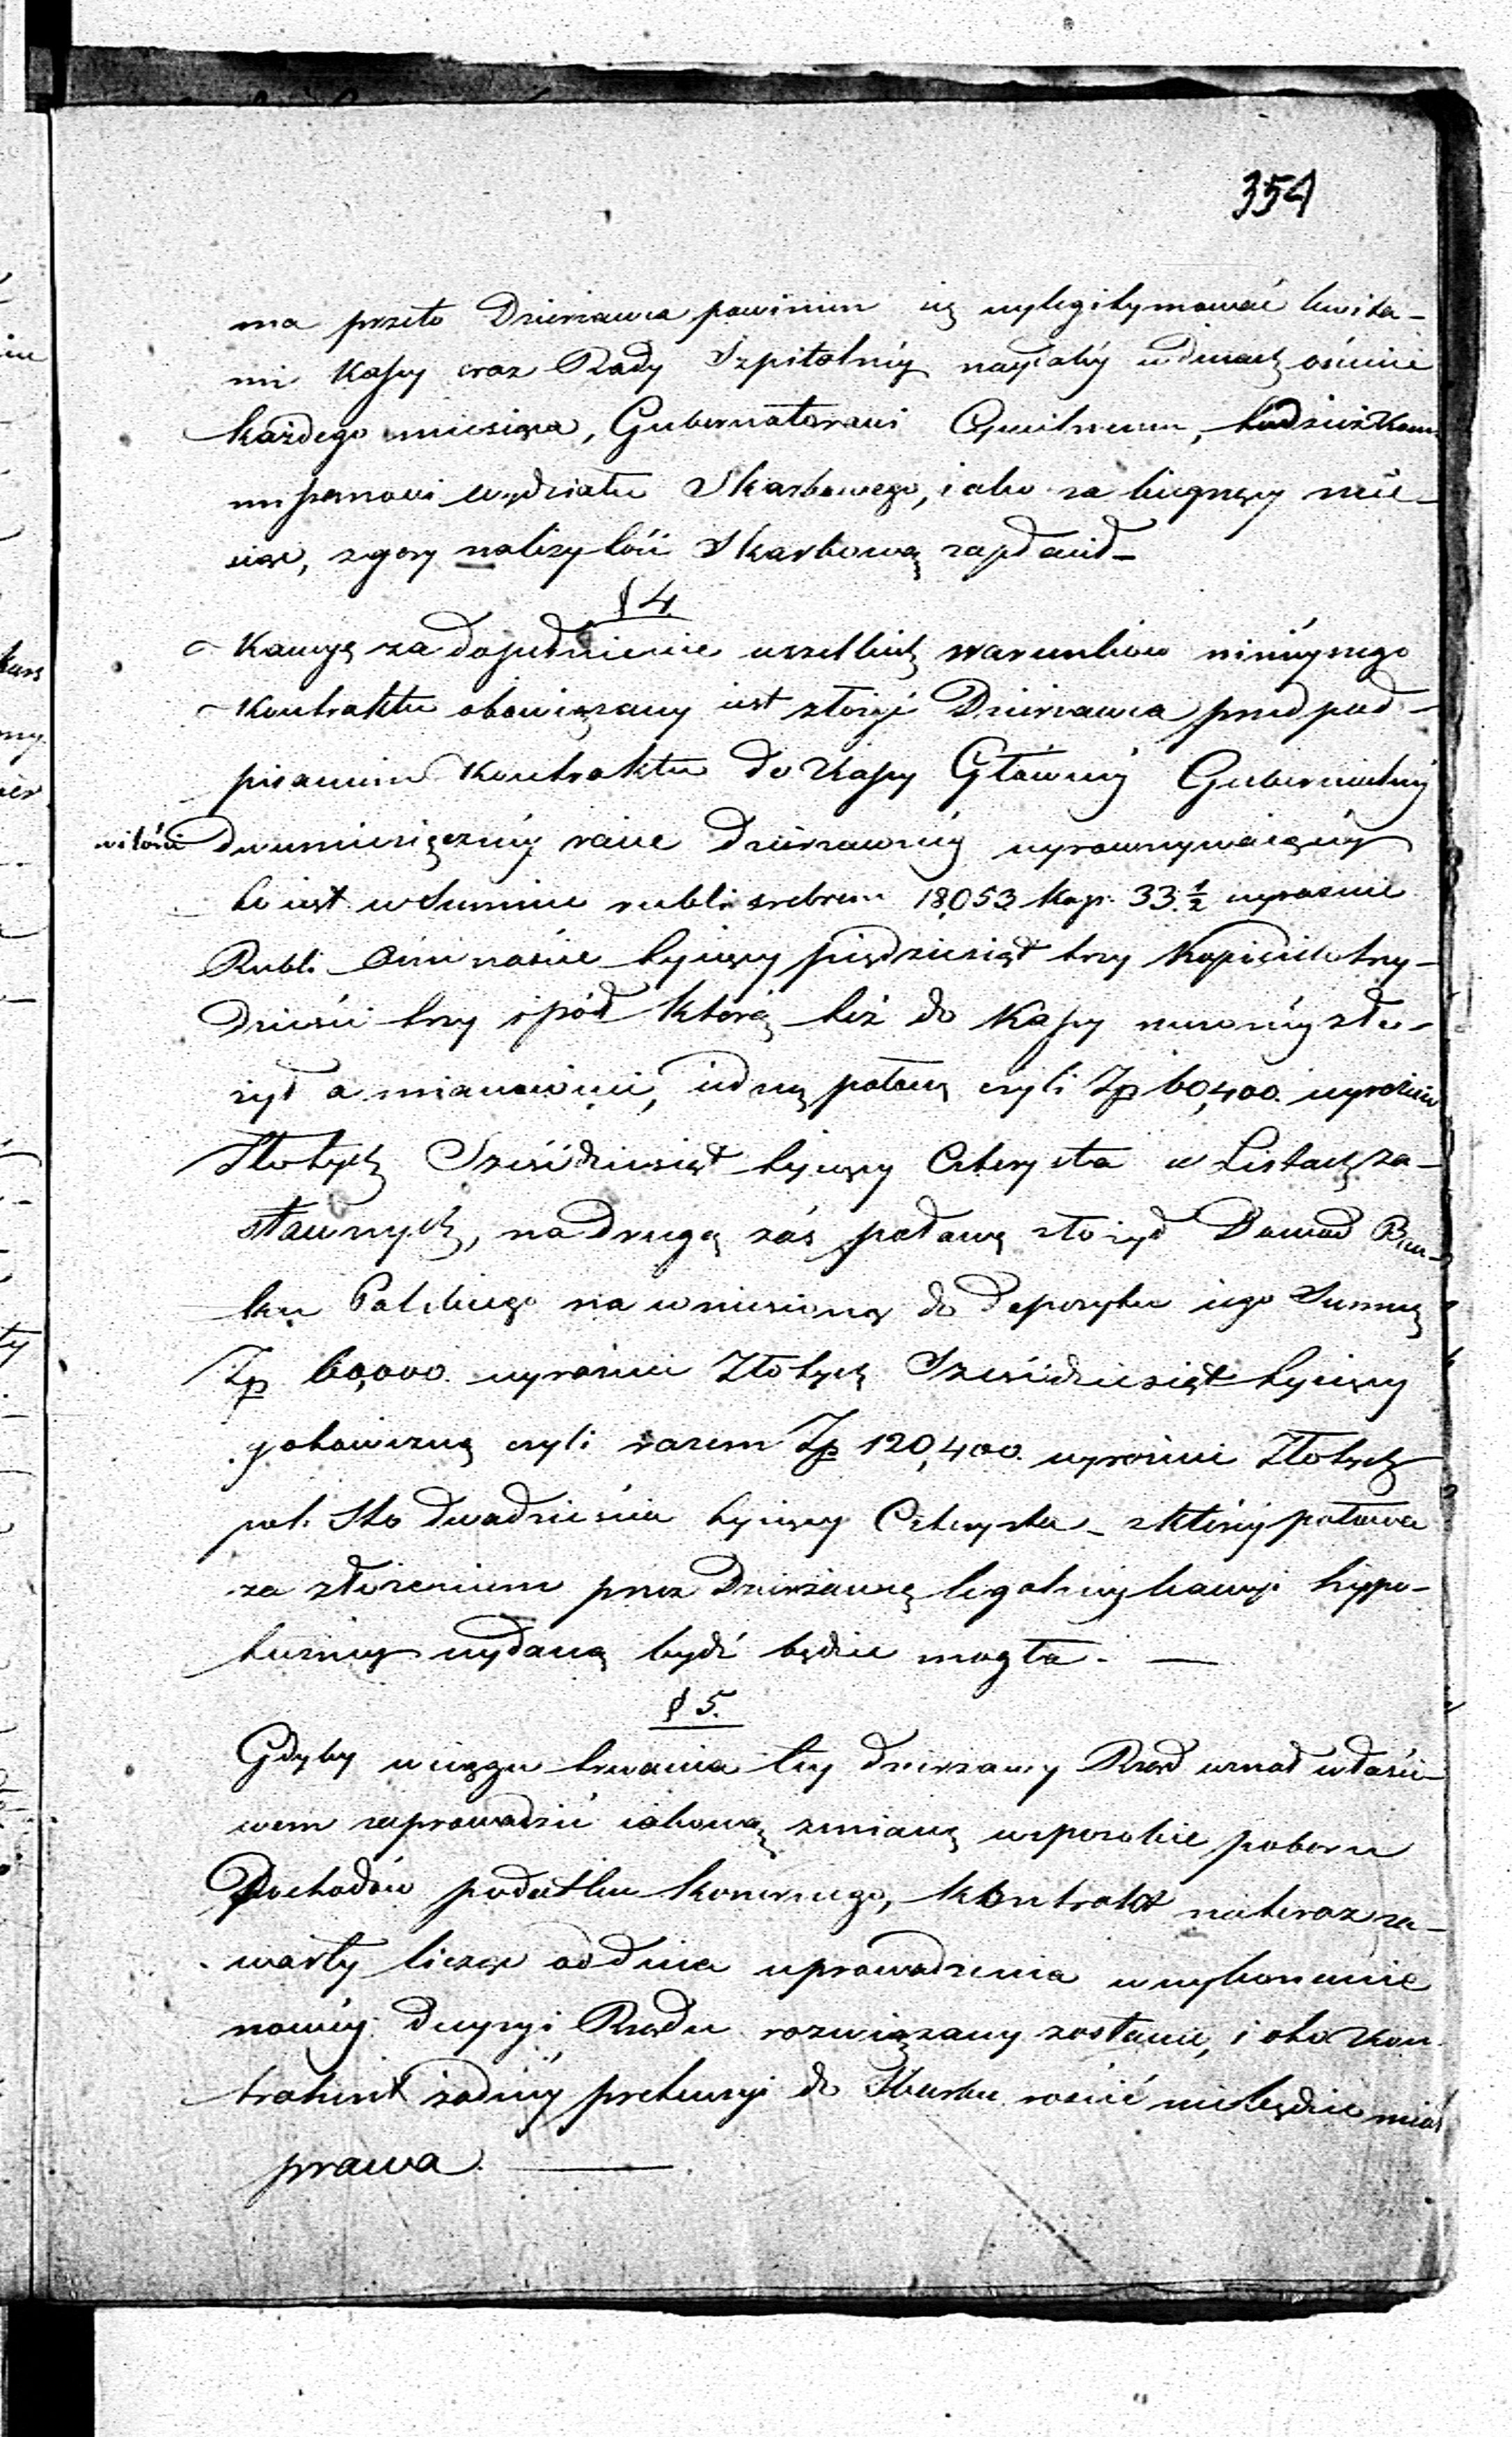 354
ma przeto Dzierzawca powinien się wylegitymować kwita-
mi Kassy oraz Rady Szpitalnéy naydaléy w dniach ośmiu
każdego miesiąca, Gubernatorowi Cywilnemu, tudzież Kom-
missarzowi wydziału Skarbowego, iako za bieżący mie-
siąc, z góry należytość Skarbową zapłacił_
§ 4.
Kaucyą za dopełnienie wszelkich warunków ninieyszego
Kontraktu obowiązany iest złożyć Dzierzawca przed pod-
pisaniem Kontraktu do Kassy Głównéy Gubernialnéy
dwumiesięcznéy racie dzierzawnéy wyrownywaiącéy
to iest w Summie rubli srebrem 18,053 kop. 33 ½ wyraźnie
Rubli Ośmnaście tysięcy pięćdziesiąt trzy Kopieiek trzy-
dzieści trzy i pół którą też do Kassy rzeczonéy zło-
żył a mianowicie, iedną połowę czyli Zp 60,400. wyraźnie
Złotych Sześćdziesiąt tysięcy Czterysta w Listach za-
stawnych, na drugą zaś połowę złożył Dowód Ban-
ku Polskiego na wniesioną do depozytu iego Summę
Zp 60,000. wyraźnie Złotych Sześćdziesiąt tysięcy
gotowizną czyli razem Zp 120,400. wyraźnie Złotych
pol. Sto dwadzieścia tysięcy Czterysta _ z któréy połowa
za złożeniem przez Dzierzawcę legalnéy kaucyi hypo-
teczney wydaną bydź będzie mogła. —
§ 5.
Gdyby w ciągu trwania tey dzierzawy Rząd uznał właści-
wem zaprowadzić iakową zmianę w sposobie poboru
Dochodów podatku konsumcyinego, Kontrakt na teraz za-
warty licząc od dnia wprowadzenia w wykonanie
nowéy decyzyi Rządu rozwiązany zostanie, i oto Kon-
trahent żadnéy pretensyi do Skarbu rościć nie będzie miał
prawa. —